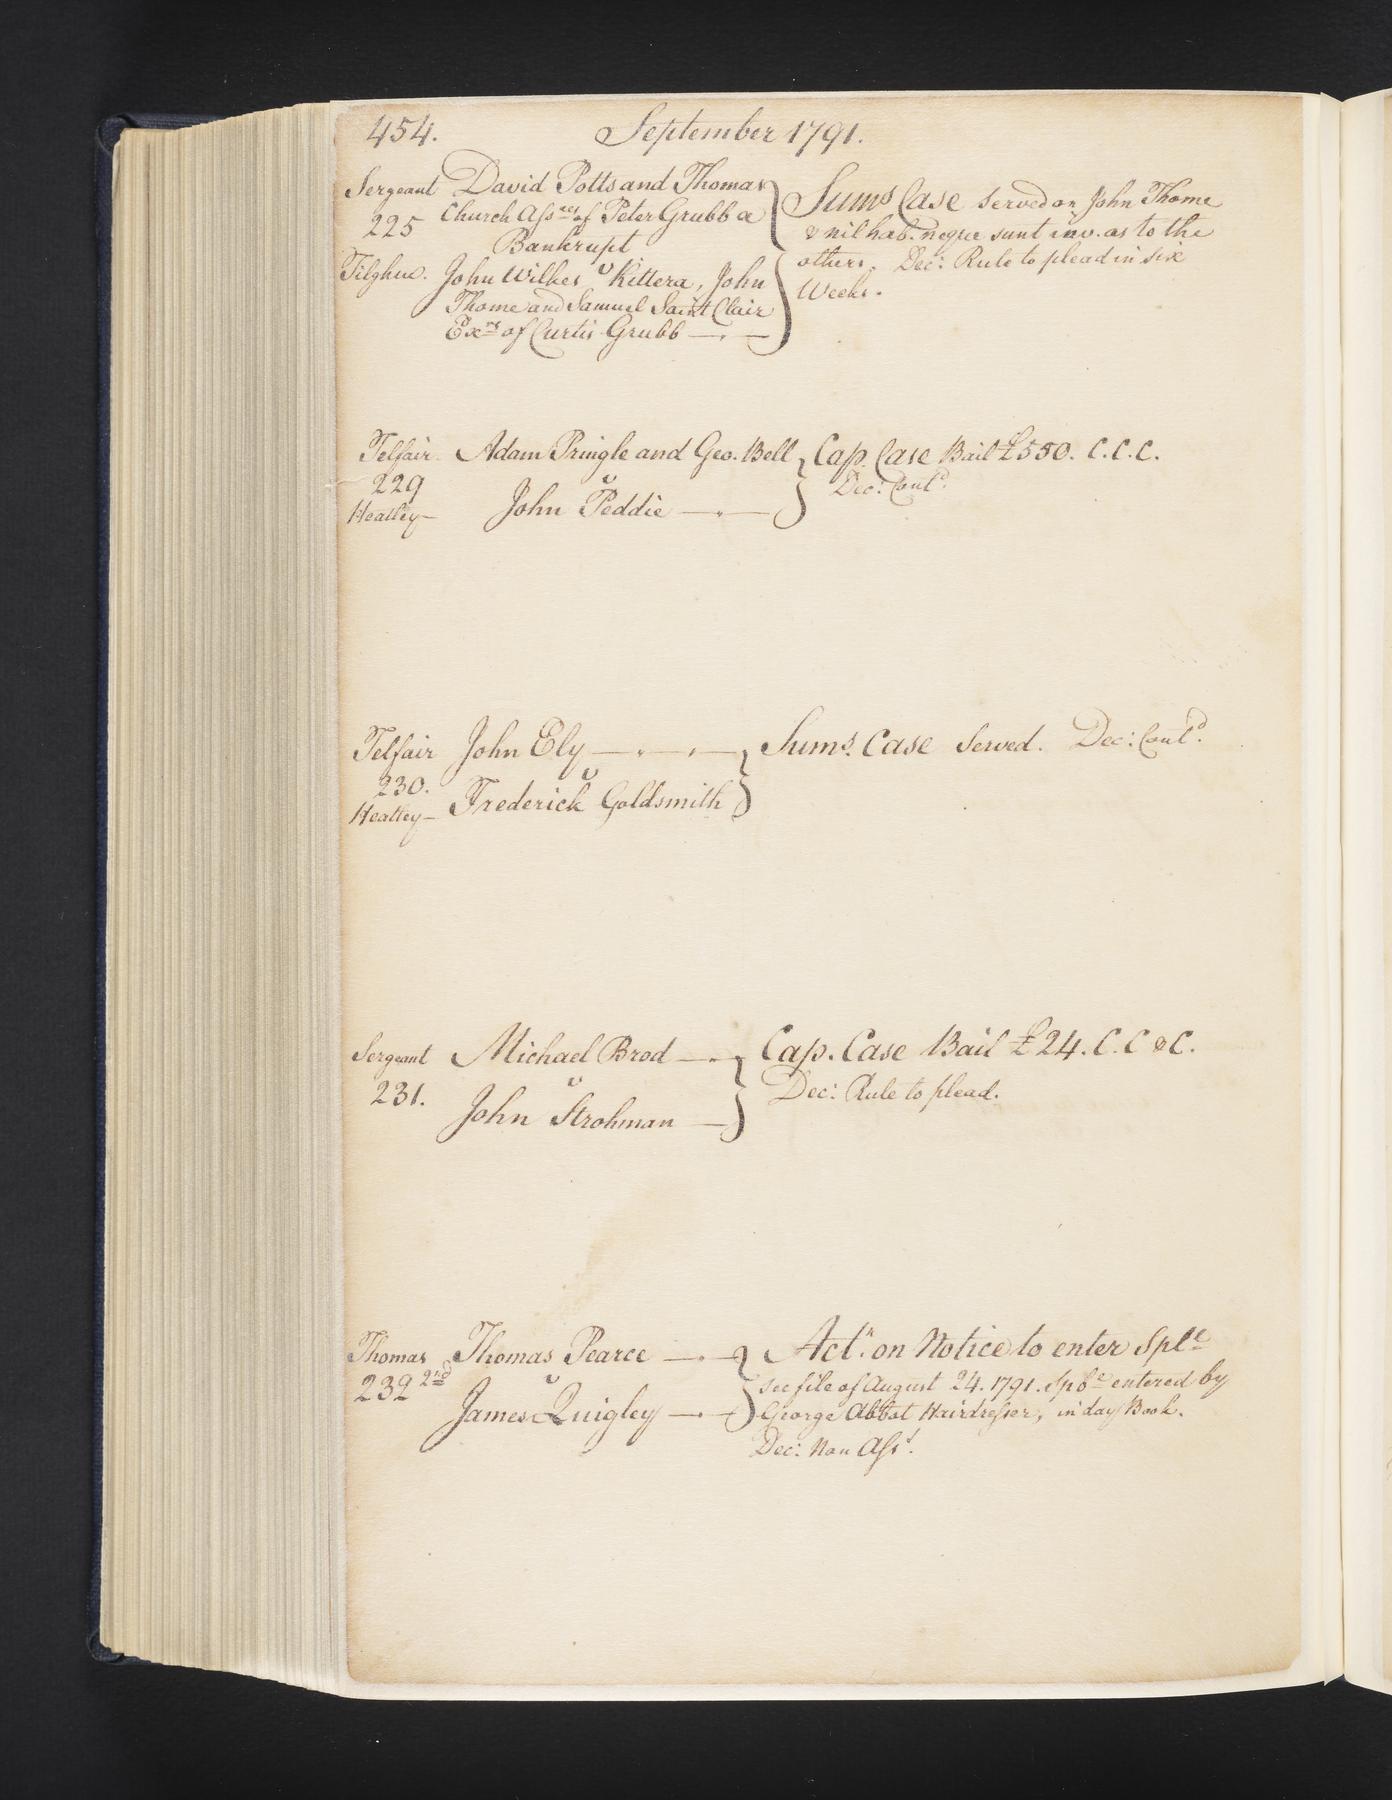 454. September 1791.
Sergeant David Potts and Thomas
225 Church Assnes of Peter Grubb a
Bankrupt
v
Tilghm. John Wilkes Kittera, John
Thome and Samuel Saint Clair
Exrs of Curtis Grubb
Sums Case Served on John Thome
& nil hab. neque sunt inv. as to the
others. Dec: Rule to plead in six
Weeks.
Telfair Adam Pringle and Geo. Bell
229 v
Heatley John Peddie
Cap. Case Bail £550. C.C.C.
Dec: Contd.
Telfair John Ely
230. v
Heatley Frederick Goldsmith
Sums. Case Served. Dec: Contd.
Sergeant Michael Brod
231. v
John Strohman
Cap. Case Bail £24. C.C & C.
Dec: Rule to plead.
Thomas Thomas Pearce
232 2nd v
James Quigley
Actn. on Notice to enter Sple
see file of August 24. 1791. Sple entered by
George Abbot Hairdresser, in day Book.
Dec: Non Asst.